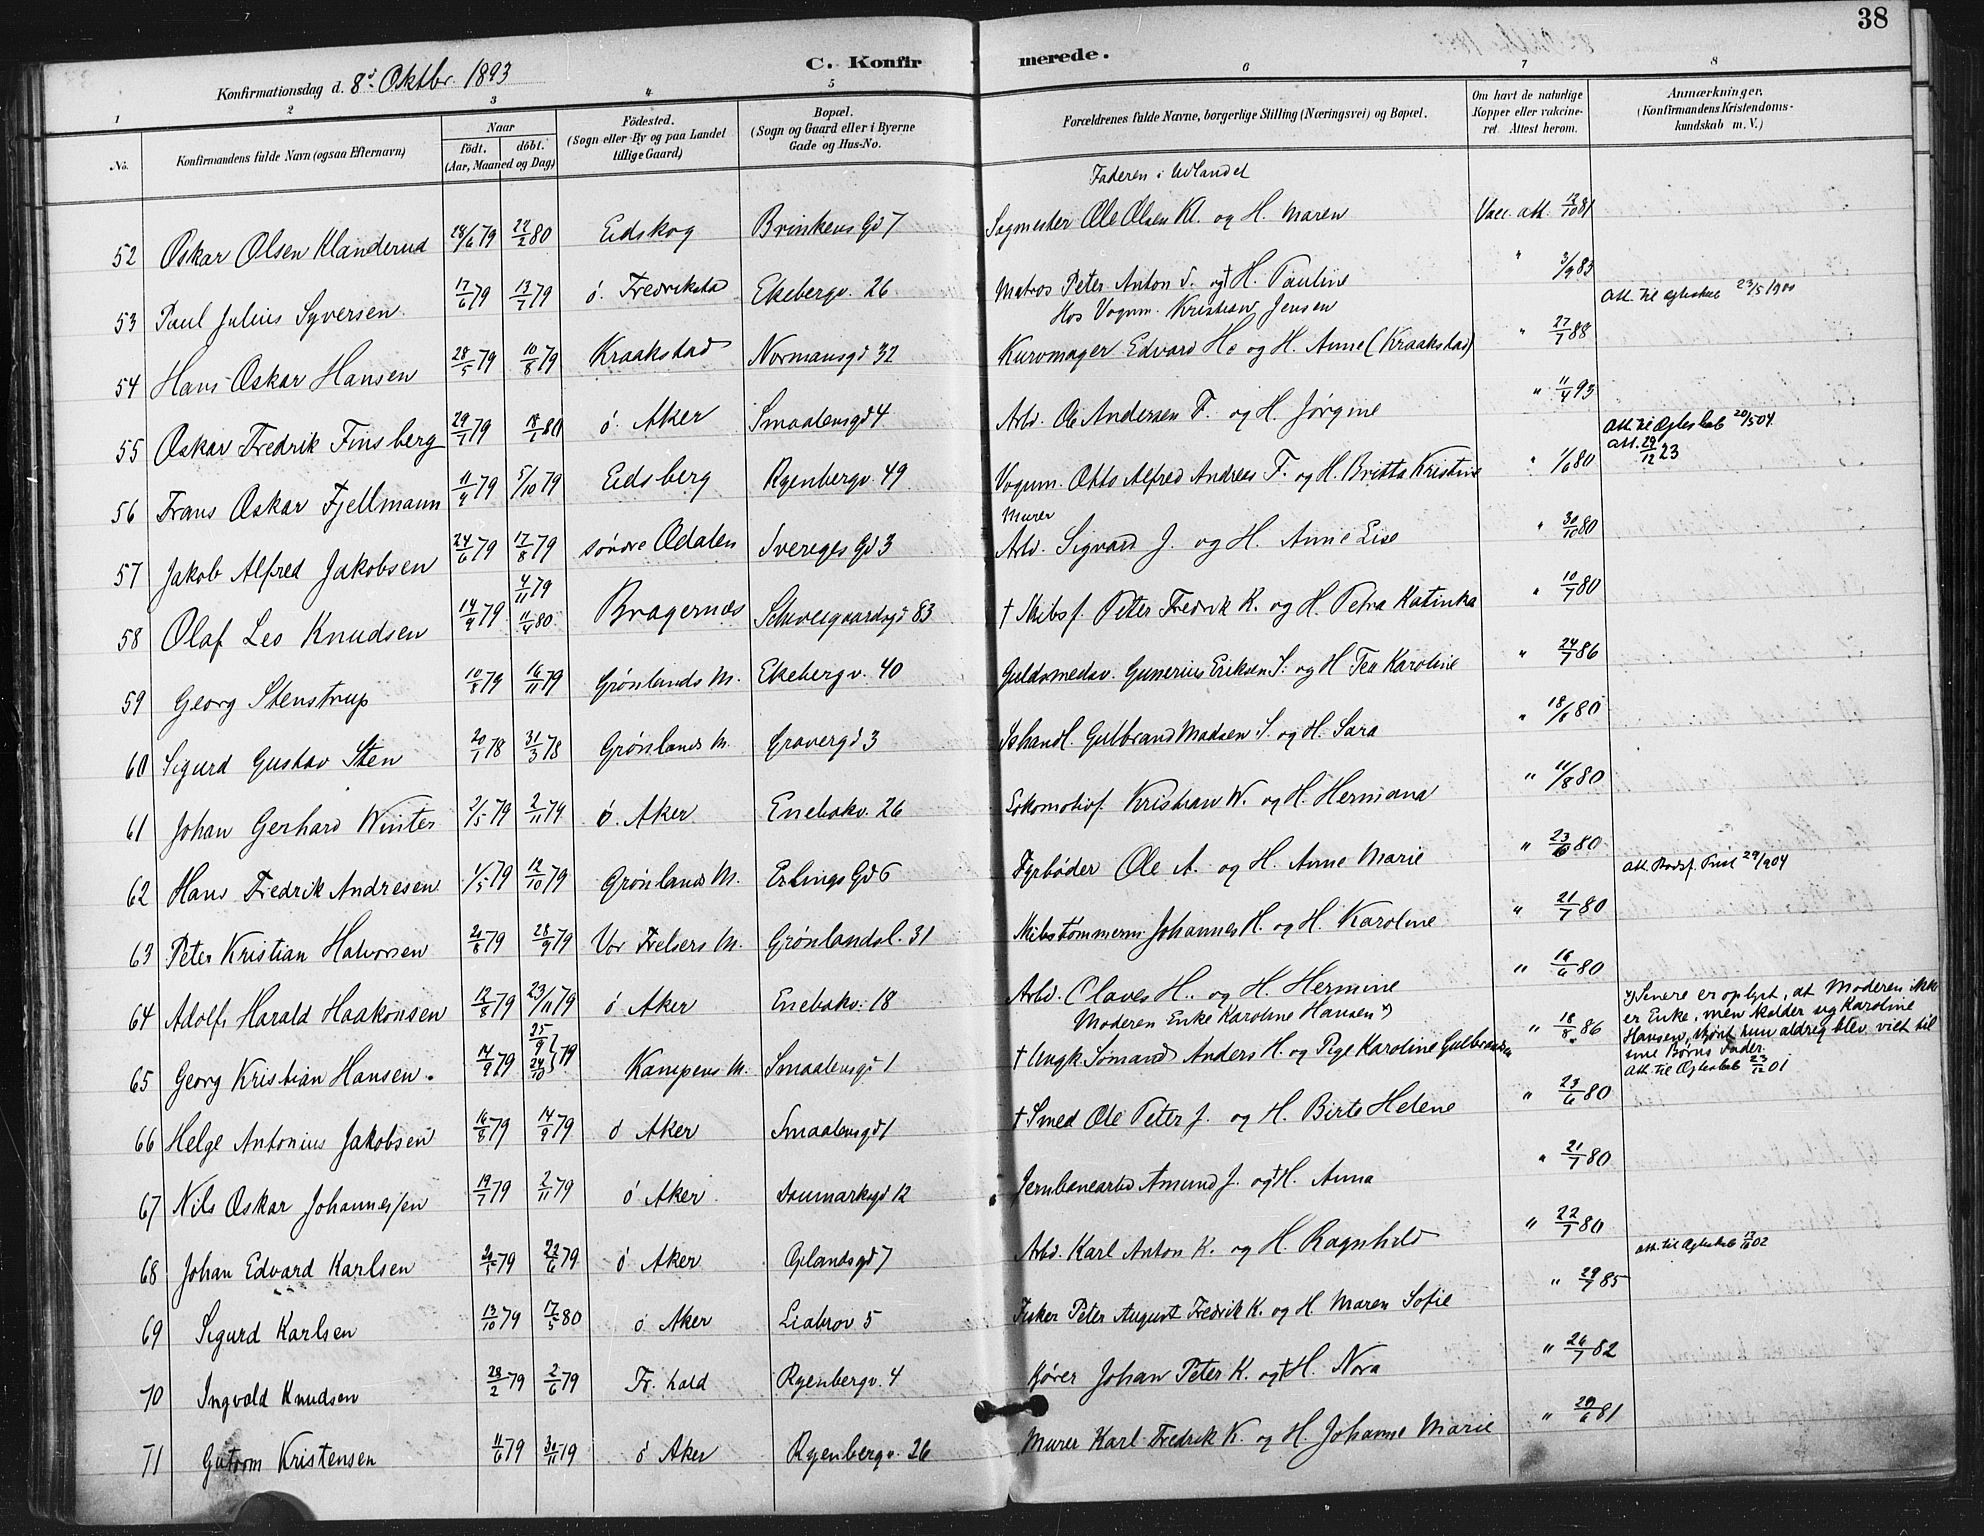 38
C. Konfirmerede.
Konfirmationsdag d. 8d Oktbr. 1893
1 2 3 4 5 6 7 8
No.
Konfirmandens fulde Navn (ogsaa Efternavn)
Naar
födt. döbt.
(Aar, Maaned og Dag)
Födested.
(Sogn eller By og paa Landet
tillige Gaard)
Bopæl.
(Sogn og Gaard eller i Byerne
Gade og Hus-No.
Forældrenes fulde Navne, borgerlige Stilling (Næringsvei) og Bopæl.
Om havt de naturlige
Kopper eller vakcine-
ret. Attest herom.
Anmærkninger.
(Konfirmandens Kristendoms-
kundskab m. V.)
Faderen i Udlandet
52 Oskar Olsen Klanderud 28/6 79 22/2 80 Eidskog Brinkens Gd 7 Sagmester Ole Olsen Kl. og H. Maren Vacc. att. 12/10 81
53 Paul Julius Syversen 17/6 79 13/7 79 ö. Fredrikstad Ekebergv. 26 Matros Peter Anton S. og † H. Pauline " 3/9 83 Att. til Ægteskab 23/5 1900
Hos Vognm. Kristian Jensen
54 Hans Oskar Hansen 28/5 79 10/8 79 Kraakstad Normansgd 32 Kurvmager Edvard H. og H. Anne (Kraakstad) " 27/7 88
55 Oskar Fredrik Finsberg 29/7 79 18/1 80 ö. Aker Smaalensgd 4 Arbd. Ole Andersen F. og H. Jørgine " 11/4 93
Att. til Ægteskab 20/5 04
Att. 29/12 23
56 Frans Oskar Fjellmann 11/9 79 5/10 79 Eidsberg Ryenbergv. 49 Vognm. Otto Alfred Andreas F. og H. Britta Kristine " 1/6 80
Murer
57 Jakob Alfred Jakobsen 24/6 79 17/8 79 söndre Odalen Sveregés Gd 3 Arbd. Sigvard J. og H. Anne Lise " 30/10 80
58 Olaf Leo Knudsen 14/9 79 4/11 79 11/4 80 Bragernæs Schweigaardsgd 83 † Skibsf. Peter Fredrik K. og H. Petra Katinka " 10/7 80
59 Georg Stenstrup 10/8 79 16/11 79 Grönlands M. Ekebergv. 40 Guldsmedsv. Gunerius Eriksen S. og H Tea Karoline " 24/7 86
60 Sigurd Gustav Sten 20/1 78 31/3 78 Grönlands M. Gravergd 3 Ishandl. Gulbrand Madsen S. og H. Sara " 18/6 80
61 Johan Gerhard Winter 2/5 79 2/11 79 ö. Aker Enebakv. 26 Lokomotivf. Kristian W. og H. Hermana " 11/8 80
62 Hans Fredrik Andresen 1/5 79 12/10 79 Grönlands M. Erlings Gd 6 Fyrbøder Ole A. og H. Anne Marie " 23/6 80 Att. Bodsf. Præst 29/9 04
63 Peter Kristian Halvorsen 21/8 79 28/9 79 Vor Frelsers M. Grönlandsl. 31 Skibstömmerm. Johannes H. og H. Karoline " 21/7 80
64 Adolf Harald Haakonsen 12/8 79 23/11 79 ö Aker Enebakv. 18 Arbd. Olaves H. og H. Hermine " 16/6 80
Moderen Enke Karoline Hansen x)
65 Georg Kristian Hansen. 14/9 79 25/9 24/10 79 Kampens M. Smaalensgd 1 † Ungk. Sömand Anders H. og Pige Karoline Gulbrandsen " 18/8 86
x) Senere er oplyst, at Moderen ikke
er Enke, men kalder sig Karoline
Hansen, skjönt hun aldrig blev viet til
sine Börns Fader.
Att. til Ægteskab 23/12 01
66 Helge Antonius Jakobsen 16/8 79 14/9 79 ö Aker Smaalensgd 1 † Smed Ole Peter J. og H. Birte Helene " 23/6 80
67 Nils Oskar Johannessen 19/7 79 2/11 79 ö Aker Danmarksgd 12 Jernbanearbd Amund J. og † H. Anna " 21/7 80
68 Johan Edvard Karlsen 22/6 79 ö Aker Oplandsgd 7 Arbd. Karl Anton K. og H. Ragnhild " 22/7 80 Att. til Ægteskab 12/10 02
69 Sigurd Karlsen 13/10 79 17/5 80 ö Aker Liabrov 5 Fisker Peter August Fredrik K. og H. Maren Sofie " 29/7 85
70 Ingvald Knudsen 28/2 79 2/6 79 Fr. hald Ryenbergv. 4 Kjører Johan Peter K. og † H. Nora " 26/7 82
71 Gutorm Kristensen 11/6 79 30/11 79 ö Aker Ryenbergv. 26 Murer Karl Fredrik K. og H. Johanne Marie " 20/6 81